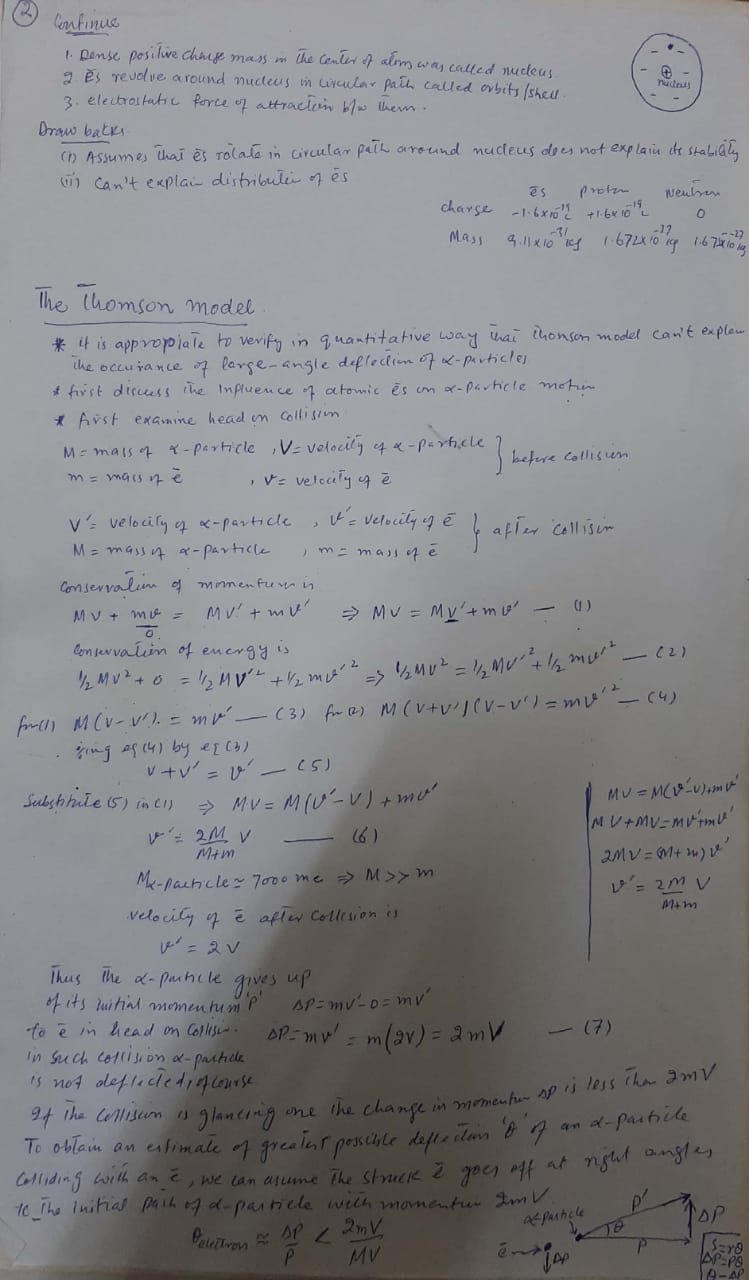 ②
Continue
1. Dense positive charge mass in the center of atom was called nucleus.
2. ēs revolve around nucleus in circular path called orbits/shell.
3. electrostatic force of attraction b/w them.
nucleus
Draw backs
(i) Assumes that ēs rotate in circular path around nucleus does not explain its stability
(ii) Can't explain distribution of ēs
ēs proton Neutron
charge -1.6x10⁻¹⁹C +1.6x10⁻¹⁹C 0
Mass 9.11x10⁻³¹kg 1.672x10⁻²⁷kg 1.675x10⁻²⁷kg
The Thomson model
* it is appropiate to verify in quantitative way that Thonson model can't explain
the occurance of large-angle deflection of α-particles
* first discuss the influence of atomic ēs on α-particle motion
* first examine head on collision
M = mass of α-particle, V = velocity of α-particle } before collision
m = mass of ē , v = velocity of ē
V' = velocity of α-particle , v' = velocity of ē } after collision
M = mass of α-particle , m = mass of ē
Conservation of momentum is
MV + mv = MV' + mv' ⇒ MV = MV' + mv' — (1)
0
Conservation of energy is
½ MV² + 0 = ½ MV'² + ½ mv'² ⇒ ½ MV² = ½ MV'² + ½ mv'² — (2)
from(1) M(V-V') = mv' — (3) from(2) M(V+V')(V-V') = mv'² — (4)
÷ing eq(4) by eq(3)
V+V' = v' — (5)
Substitute (5) in (1) ⇒ MV = M(v'-V) + mv'
v' = 2M/M+m V — (6)
MV = M(v'-V)+mv'
MV+MV=Mv'+mv'
2MV=(M+m)v'
v' = 2M/M+m V
Mα-particle ≃ 7000 me ⇒ M>>m
velocity of ē after collision is
v' = 2V
Thus the α-particle gives up
of its initial momentum 'P' ΔP=mv'-0=mv'
to ē in head on collision. ΔP=mv' = m(2V) = 2mV — (7)
in such collision α-particle
is not deflected, of course
If the collision is glancing one the change in momentum ΔP is less than 2mV
To obtain an estimate of greatest possible deflection 'θ' of an α-particle
colliding with an ē, we can assume the struck ē goes off at right angles
to the initial path of α-particle with momentum 2mV.
θelectron ≈ ΔP/P < 2mV/MV
α-particle
ē
ΔP
θ
P'
P
ΔP
S=rθ
ΔP=Pθ